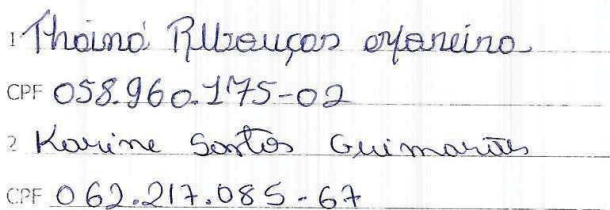 1 Thainá Rebouças
CPF 058.960.175-02
2 Karine Santos Guimarães
CPF 062.217.085-67